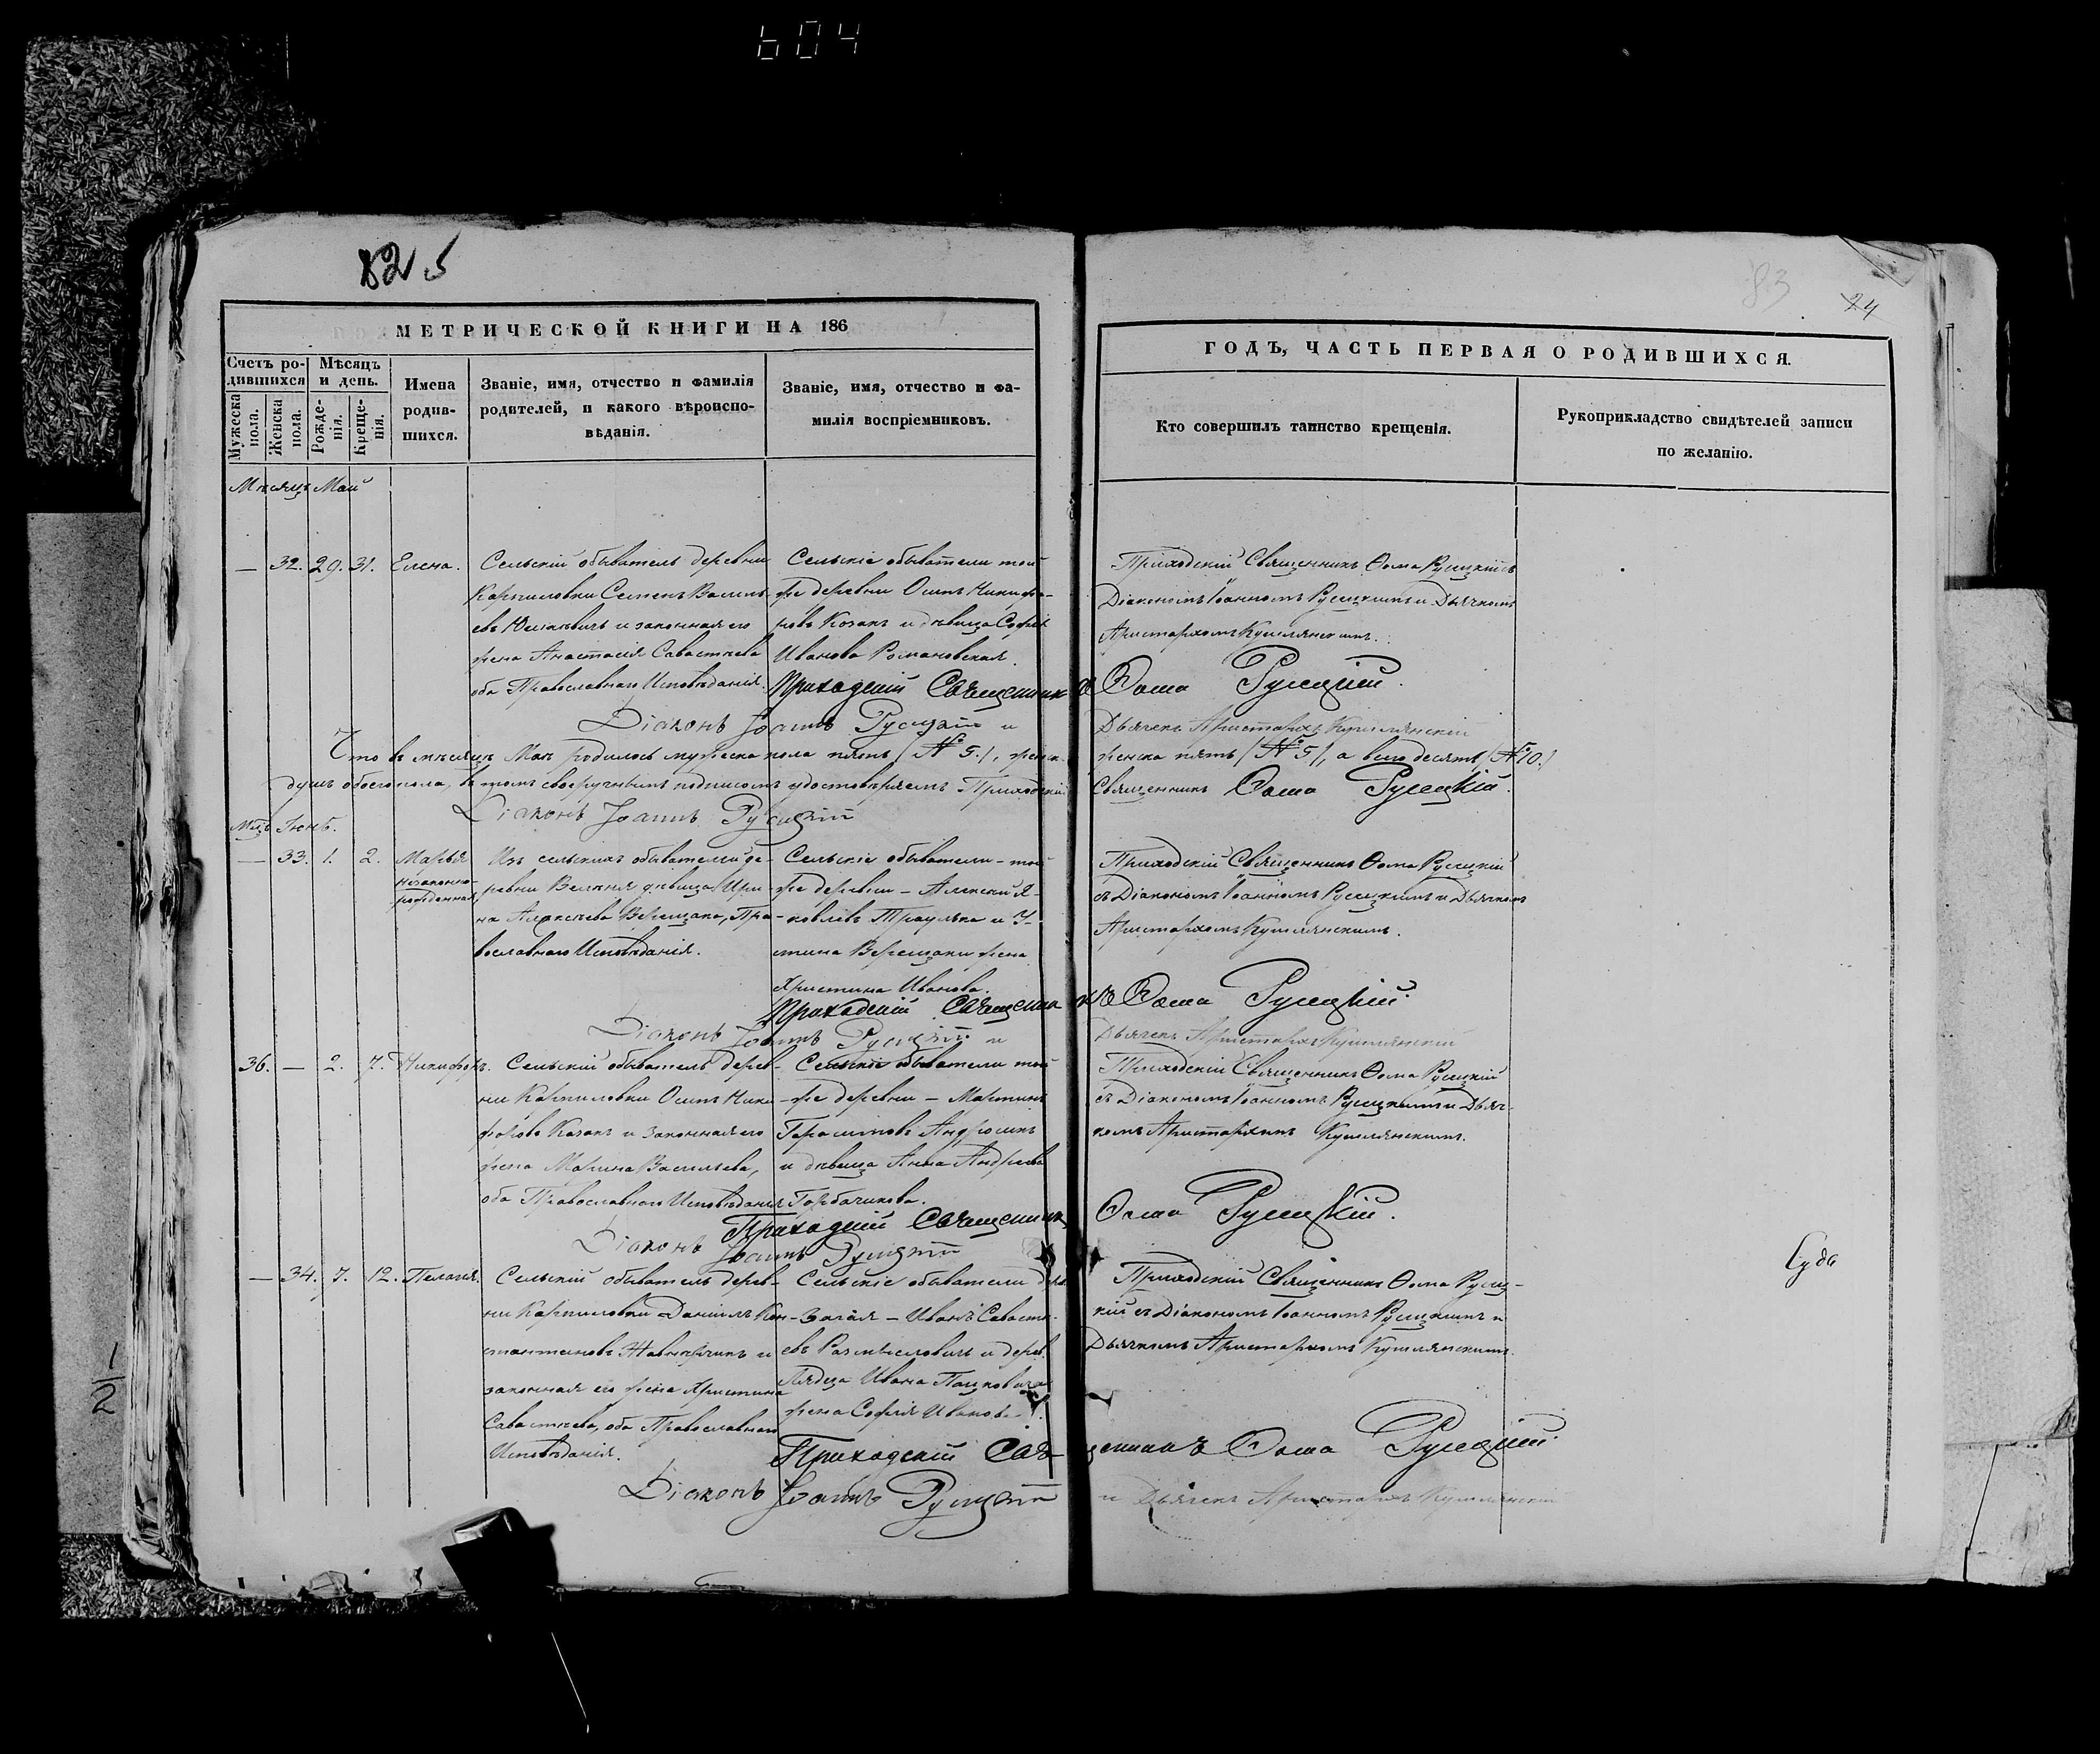 604
825
83
24
МЕТРИЧЕСКОЙ КНИГИ НА 186
ГОДЪ, ЧАСТЬ ПЕРВАЯ О РОДИВШИХСЯ.
Счетъ ро-
дившихся
Мужеска
пола.
Женска
пола.
Мѣсяцъ
и день.
Рожде-
нія.
Креще-
нія.
Имена
родив-
шихся.
Званіе, имя, отчество и фамилія
родителей, и какого вѣроиспо-
вѣданія.
Званіе, имя, отчество и фа-
милія воспріемниковъ.
Кто совершилъ таинство крещенія.
Рукоприкладство свидѣтелей записи
по желанію.
Мѣсяцъ Май
— 32. 29. 31. Елена.
Сельскій обыватель деревни
Карпиловки Семенъ Василь-
евъ и законная его
жена Анастасія Савастѣева
оба Православнаго Исповѣданія.
Сельскіе обыватели той
же деревни Осипъ Никифо-
ровъ Козакъ и дѣвица Софія
Иванова Романовская.
Приходскій Священникъ Ѳома Русецкій съ
Діакономъ Іоанномъ Русецкимъ и Дьячкомъ
Аристархомъ Кушлянскимъ.
Приходскій Священникъ Ѳома Русецкій.
Діаконъ Іоаннъ Русецкій и Дьячекъ Аристархъ Кушлянскій
Что въ мѣсяцѣ Маѣ родилось мужеска пола пять (№ 5.), женска пять (№ 5), а всего десять (№ 10.)
душъ обоего пола, въ томъ своеручнымъ подписомъ удостовѣряемъ Приходскій Священникъ Ѳома Русецкій.
Діаконъ Іоаннъ Русецкій
Мцъ Іюнь.
— 33. 1. 2. Марья
незаконно-
рожденная
Изъ сельскихъ обывателей де-
ревни дѣвица Ири-
на Алексѣева Верещака, Пра-
вославнаго Исповѣданія.
Сельскіе обыватели той
же деревни — Алексѣй Я-
ковлевъ и У-
стина Верещаки жена
Христина Иванова.
Приходскій Священникъ Ѳома Русецкій
съ Діакономъ Іоанномъ Русецкимъ и Дьячкомъ
Аристархомъ Кушлянскимъ.
Приходскій Священникъ Ѳома Русецкій.
Діаконъ Іоаннъ Русецкій и Дьячекъ Аристархъ Кушлянскій
36. — 2. 7. Никифоръ.
Сельскій обыватель дерев-
ни Карпиловки Осипъ Ники-
форовъ Козакъ и законная его
жена Марина Васильева,
оба Православнаго Исповѣданія
Сельскіе обыватели той
же деревни — Мартинъ
Герасимовъ
и дѣвица Анна Андреева
Горбачикова.
Приходскій Священникъ Ѳома Русецкій
съ Діакономъ Іоанномъ Русецкимъ и Дьяч-
комъ Аристархомъ Кушлянскимъ.
Приходскій Священникъ Ѳома Русецкій.
Діаконъ Іоаннъ Русецкій
— 34. 7. 12. Пелагія.
Сельскій обыватель дерев-
ни Карпиловки Даніилъ Кон-
стантиновъ и
законная его жена Христина
Савастѣева, оба Православнаго
Исповѣданія.
Сельскіе обыватели
Иванъ Савастѣ-
евъ и дерев.
Ивана Пацкевича
жена Софія Иванова.
Приходскій Священникъ Ѳома Русец-
кій съ Діакономъ Іоанномъ Русецкимъ и
Дьячкомъ Аристархомъ Кушлянскимъ.
Приходскій Священникъ Ѳома Русецкій.
Діаконъ Іоаннъ Русецкій и Дьячекъ Аристархъ Кушлянскій
1/2